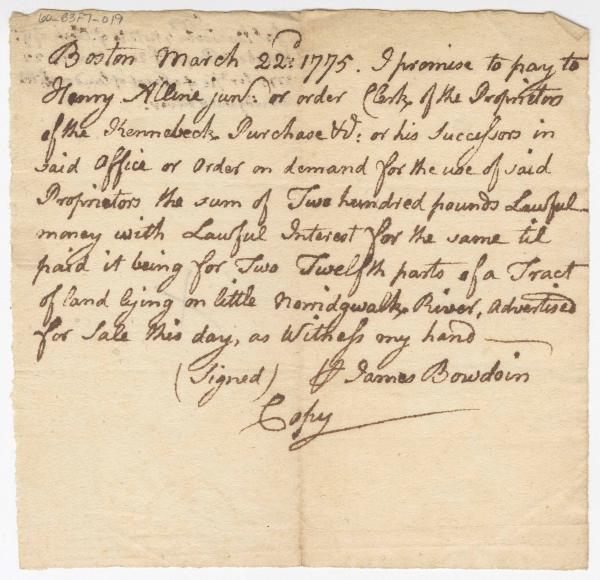 60-B3F7-019
Boston March 22d. 1775. I promise to pay to
Henry Alline junr. or order Clerk of the Proprietors
of the Kennebeck Purchase &c: or his Successors in
said Office or Order on demand for the use of said
Proprietors the sum of Two hundred pounds Lawful
money with Lawful Interest for the same til
paid it being for Two Twelfth parts of a Tract
of land lying on little Norridgwalk River, advertised
for Sale this day, as Witness my hand
(Signed) James Bowdoin
Copy